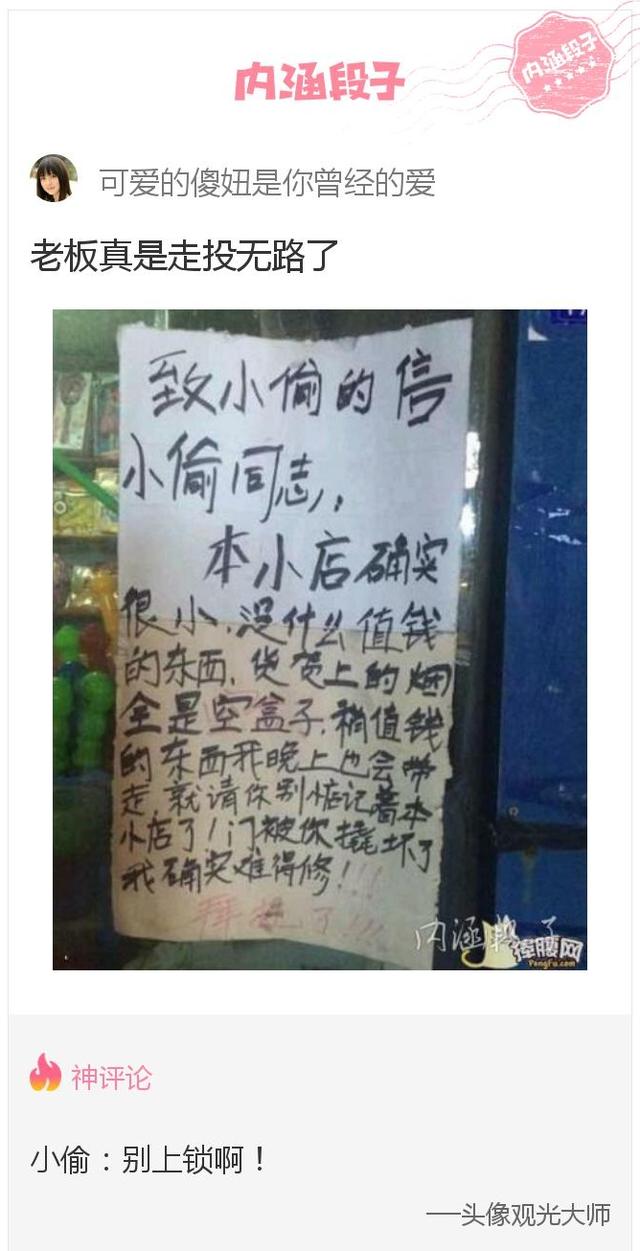 内涵段子
内涵段子
可爱的傻妞是你曾经的爱
老板真是走投无路了
致小偷的信
小偷同志,
本小店确实
很小,没什么值钱
的东西,货架上的烟
全是空盒子,稍值钱
的东西我晚上也会带
走,就请你别惦记着本
小店了!门被你撬坏了
我确实难得修!!!
拜托了!!!
内涵段子
捧腹网
PengFu.com
神评论
小偷：别上锁啊！
──头像观光大师